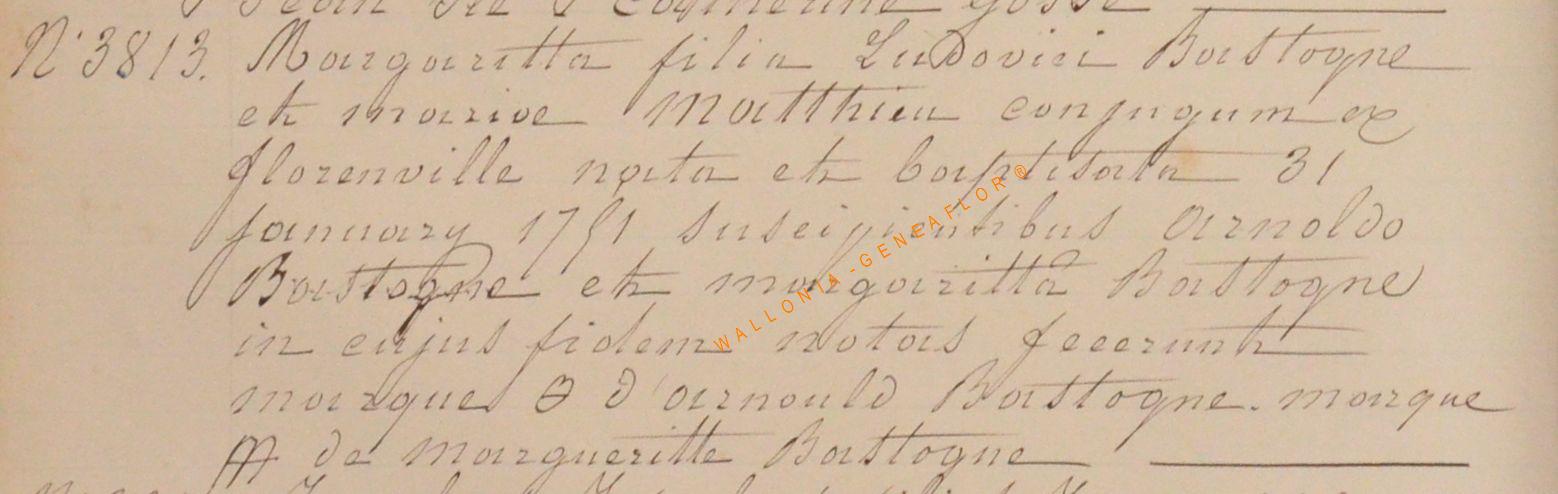 N° 3813. Margaritta filia Ludovici Bastogne
et mariae Matthieu conjugum ex
florenville nata et baptisata 31
january 1751 suscipientibus Arnoldo
Bastogne et margaritta Bastogne
in cujus fidem notas fecerunt
marque d'arnould Bastogne. marque
de margueritte Bastogne
WALLONIA-GENEAFLOR®